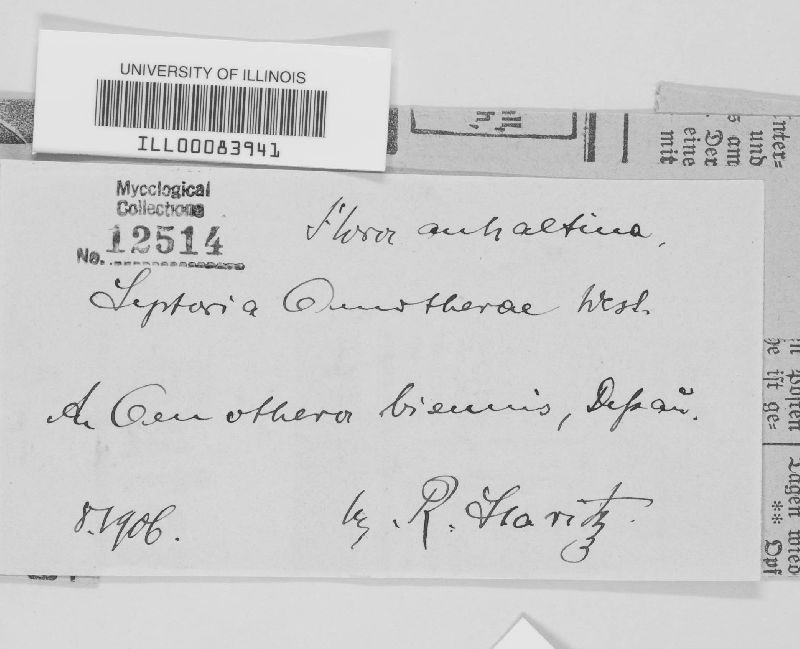 UNIVERSITY OF ILLINOIS
ILL00083941
Mycological
Collections
No. 12514
Flora anhaltina.
Septoria Oenotherae West.
An Oenothera biennis, Deßaŭ.
8.1906. lg. R. Staritz.
nter=
und
s am
Der
eine
mit
ist ge=
Tagen wied
** Opf